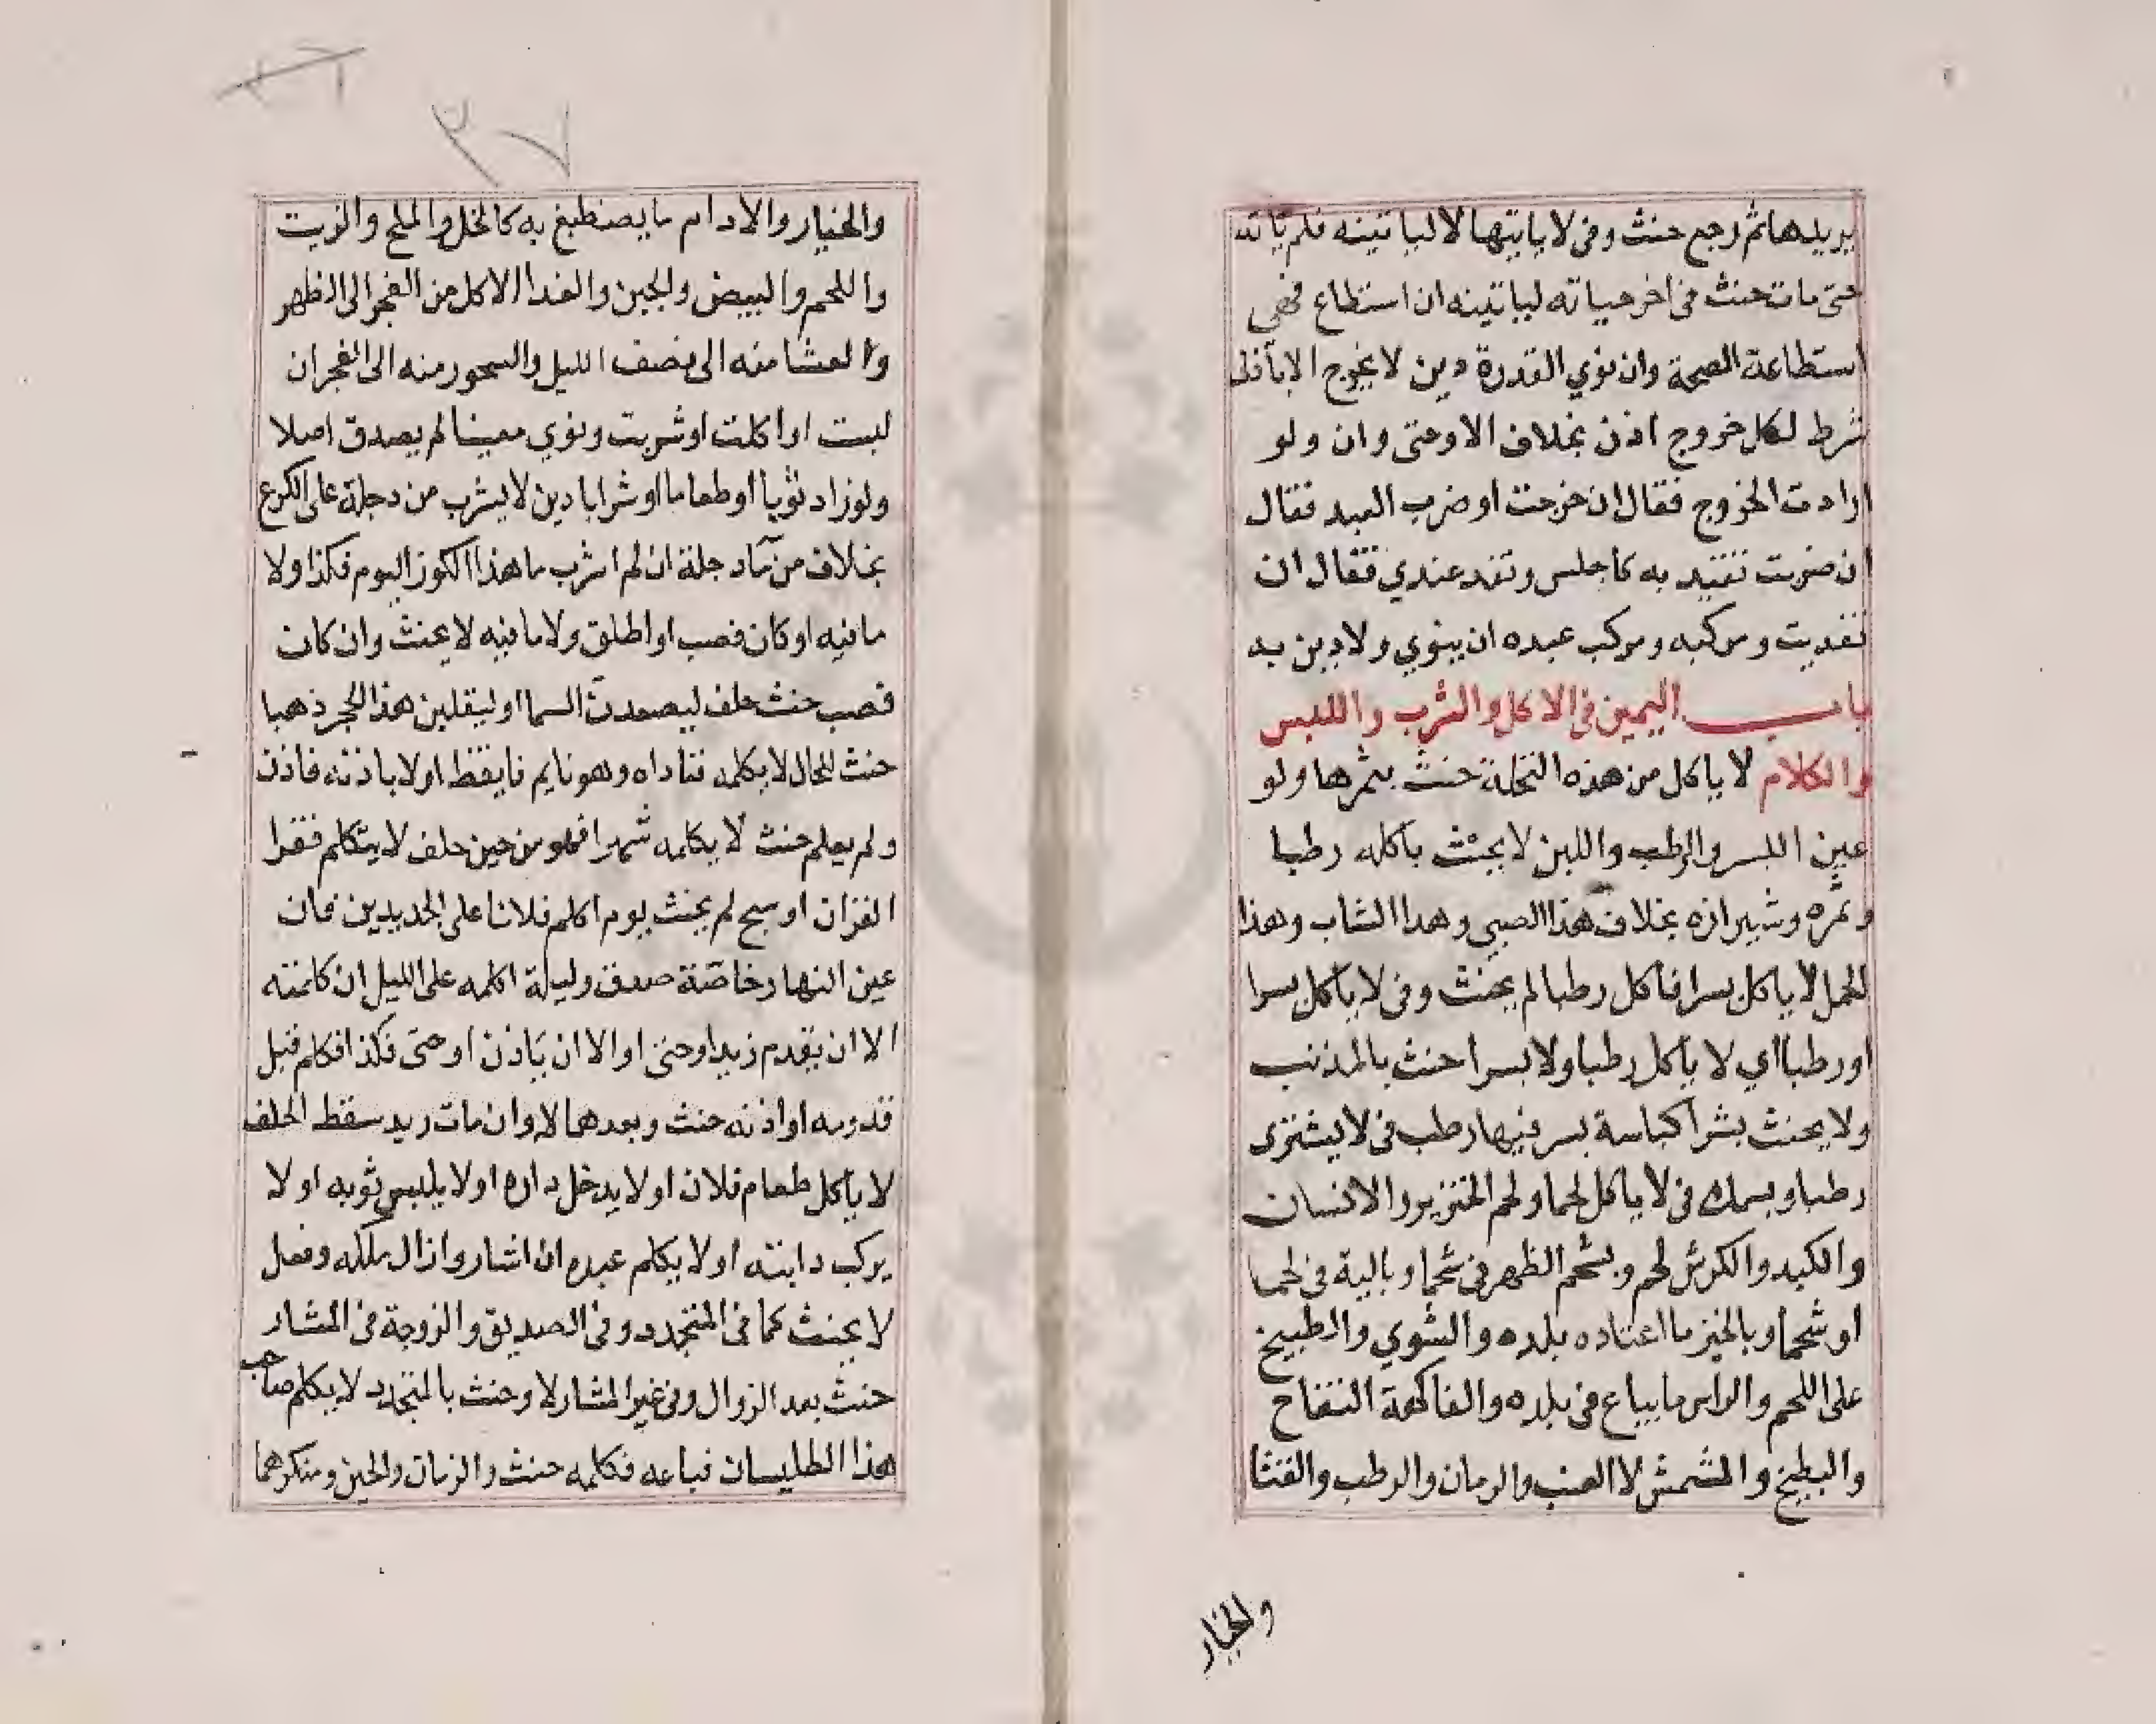 يريدها ثم رجع حنث وفي لا ياتيها لا لياتينه فلم ياته
حتى مات حنث في اخر حياته لياتينه ان استطاع فهي
استطاعة الصحة وان نوي القدرة دين لا يخرج الا باذني
شرط لكل خروج اذن بخلاف الا وحتى وان ولو
ارادت الخروج فقال ان خرجت او ضرب العبد فقال
ان ضربت تقيد به كاجلس وتغد عندي فقال ان
تغديت ومركبه ومركب عبده ان ينوي ولا دين به
باب اليمين في الاكل والشرب واللبس
والكلام لا ياكل من هذه النخلة حنث بثمرها ولو
عين البسر والرطب واللبن لا يحنث باكله رطبا
وتمره وشيرازه بخلاف هذا الصبي وهذا الشاب وهذا
الحمل لا ياكل بسرا فاكل رطبا لم يحنث وفي لا ياكل بسرا
او رطبا اي لا ياكل رطبا ولا بسرا حنث بالمذنب
ولا يحنث بشرا كباسة بسر فيها رطب في لا يشتري
رطبا وبسمك في لا ياكل لحما ولحم الخنزير والانسان
والكبد والكرش لحم وبشحم الظهر في شحما وبالية في لحما
او شحما وبالخبز ما اعتاده بلده والشوي والطبيخ
على اللحم والراس ما يباع في بلده والفاكهة التفاح
والبطيخ والمشمش لا العنب والرمان والرطب والقثا
والخيار
٣٧
والخيار والادام ما يصطبغ به كالخل والملح والزيت
واللحم والبيض والجبن والغدا الاكل من الفجر الى الظهر
والعشا منه الى نصف الليل والسحور منه الى الفجر ان
لبست او اكلت او شربت ونوي معينا لم يصدق اصلا
ولو زاد ثوبا او طعاما او شرابا دين لا يشرب من دجلة على الكرع
بخلاف من ماء دجلة ان لم اشرب ما هذا الكوز اليوم فكذا ولا
ما فيه او كان فصب او اطلق ولا ما فيه لا يحنث وان كان
فصب حنث حلف ليصعدن السما او ليقلبن هذا الحجر ذهبا
حنث للحال لا يكلمه فناداه وهو نايم فايقظ او لا باذنه فاذن
ولم يعلم حنث لا يكلمه شهرا فهو من حين حلف لا يتكلم فقرا
القران او سبح لم يحنث يوم اكلم فلانا على الجديدين فان
عين النهار خاصة صدق وليلة اكلمه على الليل ان كلمته
الا ان يقدم زيد او حتى او الا ان ياذن او حتى فكذا فكلم قبل
قدومه او اذنه حنث وبعدهما لا وان مات زيد سقط الحلف
لا ياكل طعام فلان او لا يدخل داره او لا يلبس ثوبه او لا
يركب دابته او لا يكلم عبده ان اشار وازال ملكه وفعل
لا يحنث كما في المتجدد وفي الصديق والزوجة في المشار
حنث بعد الزوال وفي غير المشار لا وحنث بالمتجدد لا يكلم صاحب
هذا الطليسان فباعه فكلمه حنث والزمان والحين ومنكرهما